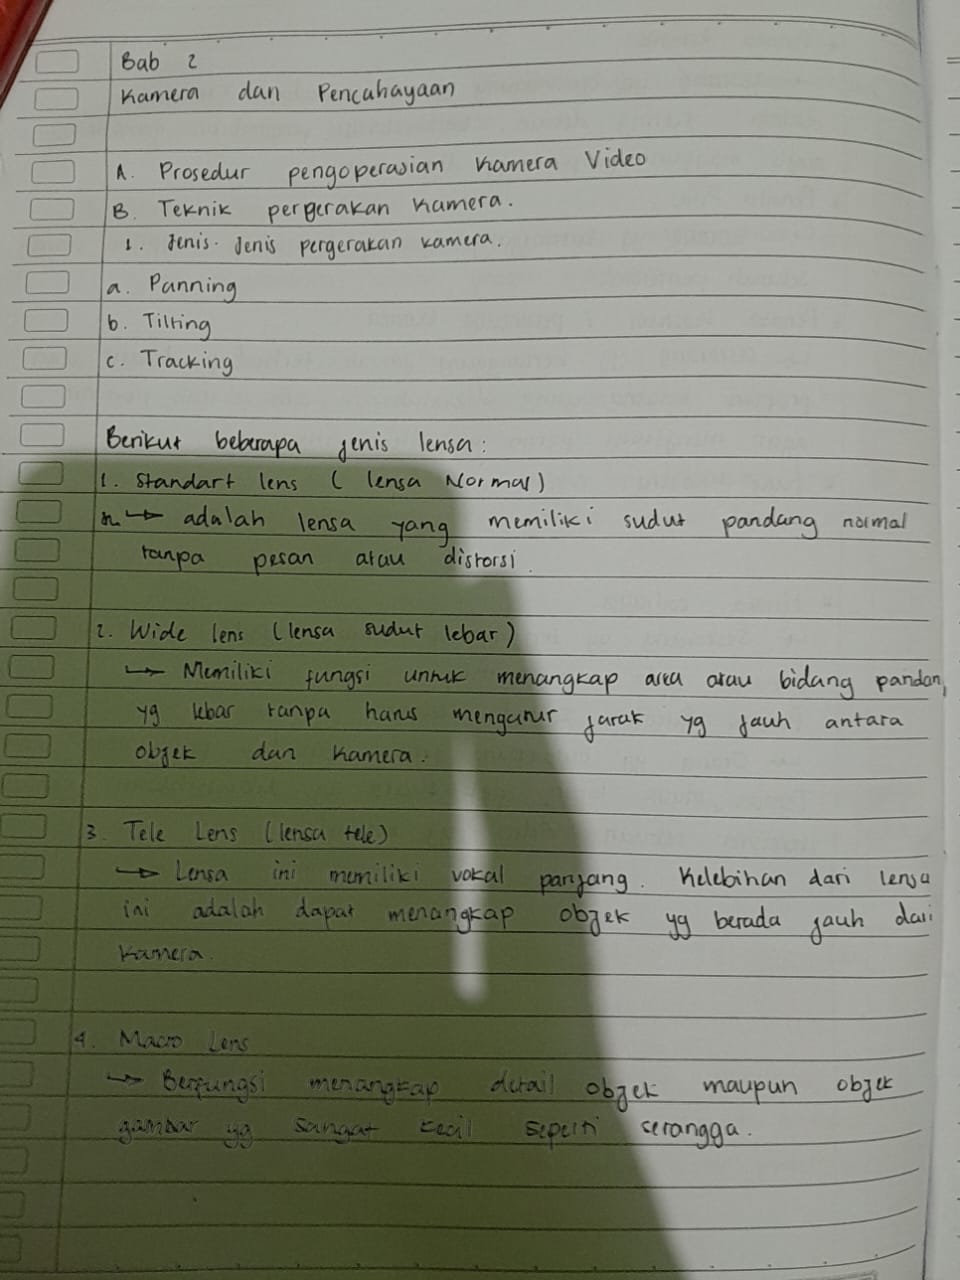 Bab 2
Kamera dan Pencahayaan
A. Prosedur pengoperasian Kamera Video
B. Teknik pergerakan Kamera.
1. Jenis-Jenis pergerakan kamera.
a. Panning
b. Tilting
c. Tracking
Berikut beberapa jenis lensa :
1. Standart lens ( lensa Normal )
→ adalah lensa yang memiliki sudut pandang normal
tanpa pesan atau distorsi.
2. Wide lens (lensa sudut lebar)
→ Memiliki fungsi untuk menangkap area atau bidang pandan,
yg lebar tanpa harus mengatur jarak yg jauh antara
objek dan Kamera.
3. Tele Lens (lensa tele)
→ Lensa ini memiliki vokal panjang. Kelebihan dari lensa
ini adalah dapat menangkap objek yg berada jauh dari
Kamera.
4. Macro Lens
→ Berfungsi menangkap detail objek maupun objek
gambar yg sangat kecil seperti serangga.